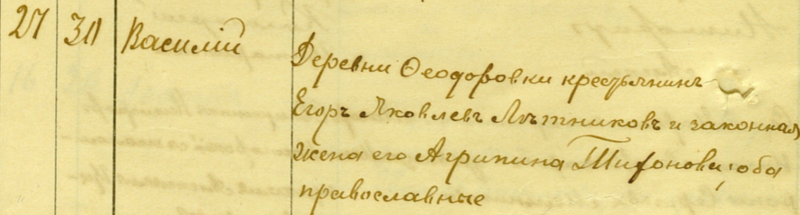 27 30 Василій
Деревни Ѳеодоровки крестьянинъ
Егоръ Яковлевъ Лѣтниковъ и законная
жена его Агрипина Тихонова, оба
православные